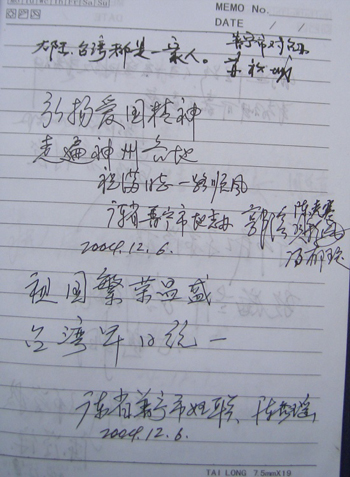 MEMO No.
DATE / /
大陆.台湾都是一家人。
普宁市对台办
弘扬爱国精神
走遍神州各地
祝苗 一路顺风
广东省普宁市地志办
2004.12.6.
祖国繁荣昌盛
台湾早日统一
广东省普宁市妇联
2004.12.6.
TAI LONG 7.5mmX19